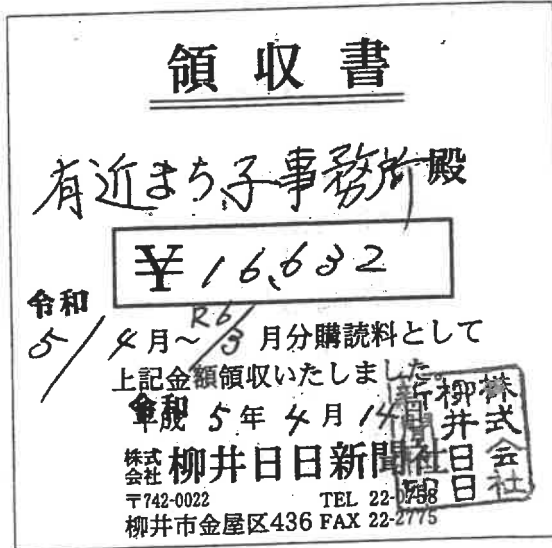 領収書
有近まち子事務所殿
¥16,632
令和
5/4月～R6/3月分購読料として
上記金額領収いたしました。
令和
平成 5年4月14日
株式会社 柳井日日新聞社
〒742-0022 TEL 22-0758
柳井市金屋区436 FAX 22-2775
株式会社
柳井日日
新聞社印